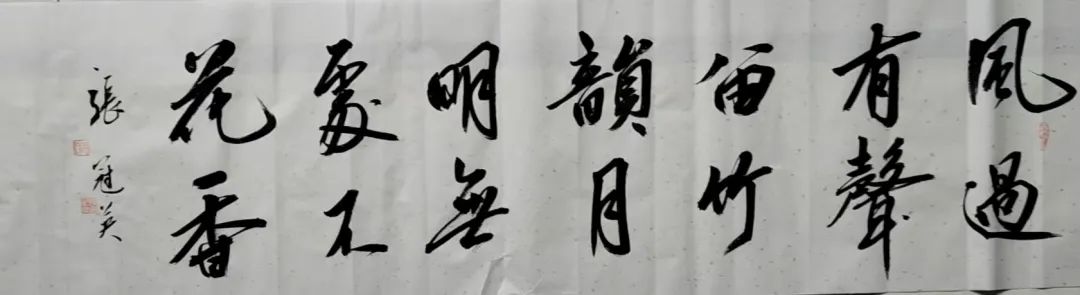 風過
有聲
留竹
韻月
明無
處不
花香
張冠英